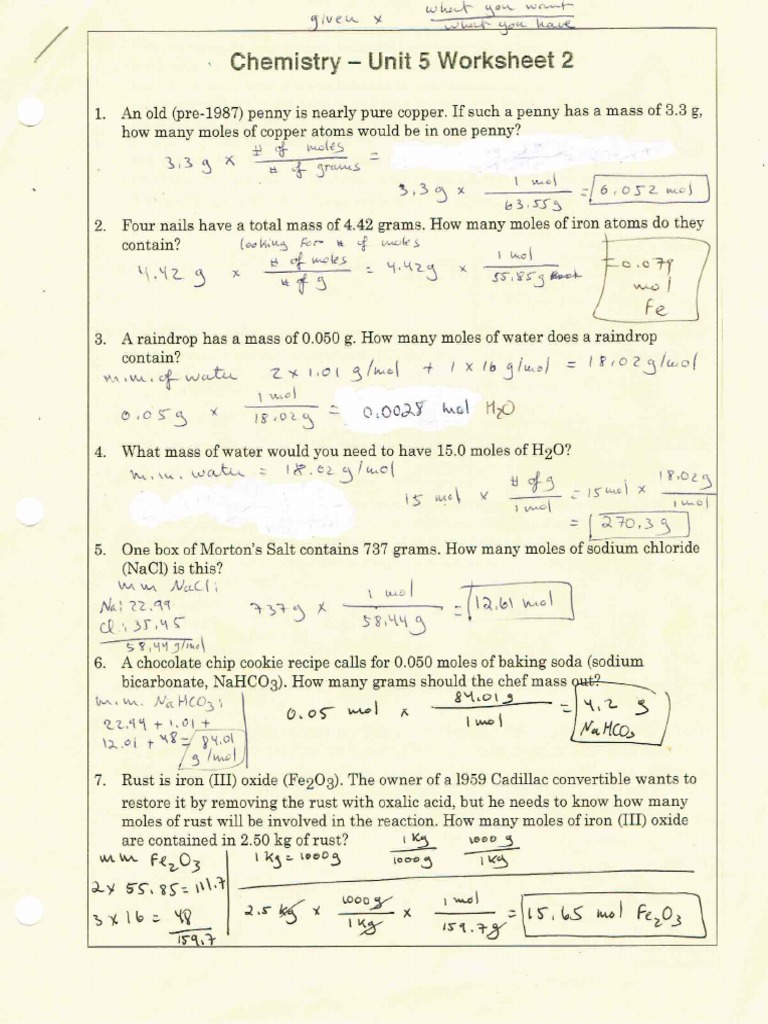 given x what you want
what you have
Chemistry – Unit 5 Worksheet 2
1. An old (pre-1987) penny is nearly pure copper. If such a penny has a mass of 3.3 g,
how many moles of copper atoms would be in one penny?
3.3 g x # of moles / # of grams =
3.3 g x 1 mol / 63.55g = 0.052 mol
2. Four nails have a total mass of 4.42 grams. How many moles of iron atoms do they
contain? looking for # of moles
4.42 g x # of moles / # of g = 4.42g x 1 mol / 55.85g = 0.079
mol
Fe
3. A raindrop has a mass of 0.050 g. How many moles of water does a raindrop
contain?
m.m. of water 2 x 1.01 g/mol + 1 x 16 g/mol = 18.02 g/mol
0.05g x 1 mol / 18.02g = 0.0028 mol H2O
4. What mass of water would you need to have 15.0 moles of H2O?
m.m. water = 18.02 g/mol
15 mol x # of g / 1 mol = 15 mol x 18.02g / 1 mol
= 270.3 g
5. One box of Morton's Salt contains 737 grams. How many moles of sodium chloride
(NaCl) is this?
m m NaCl:
Na: 22.99
Cl: 35.45
58.44 g/mol
737 g x 1 mol / 58.44 g = 12.61 mol
6. A chocolate chip cookie recipe calls for 0.050 moles of baking soda (sodium
bicarbonate, NaHCO3). How many grams should the chef mass out?
m.m. NaHCO3:
22.99 + 1.01 +
12.01 + 48 = 84.01
g/mol
0.05 mol x 84.01 g / 1 mol = 4.2 g
NaHCO3
7. Rust is iron (III) oxide (Fe2O3). The owner of a 1959 Cadillac convertible wants to
restore it by removing the rust with oxalic acid, but he needs to know how many
moles of rust will be involved in the reaction. How many moles of iron (III) oxide
are contained in 2.50 kg of rust?
m m Fe2O3
2 x 55.85 = 111.7
3 x 16 = 48
159.7
1 kg = 1000 g 1 kg / 1000 g 1000 g / 1 kg
2.5 kg x 1000g / 1 kg x 1 mol / 159.7 g = 15.65 mol Fe2O3